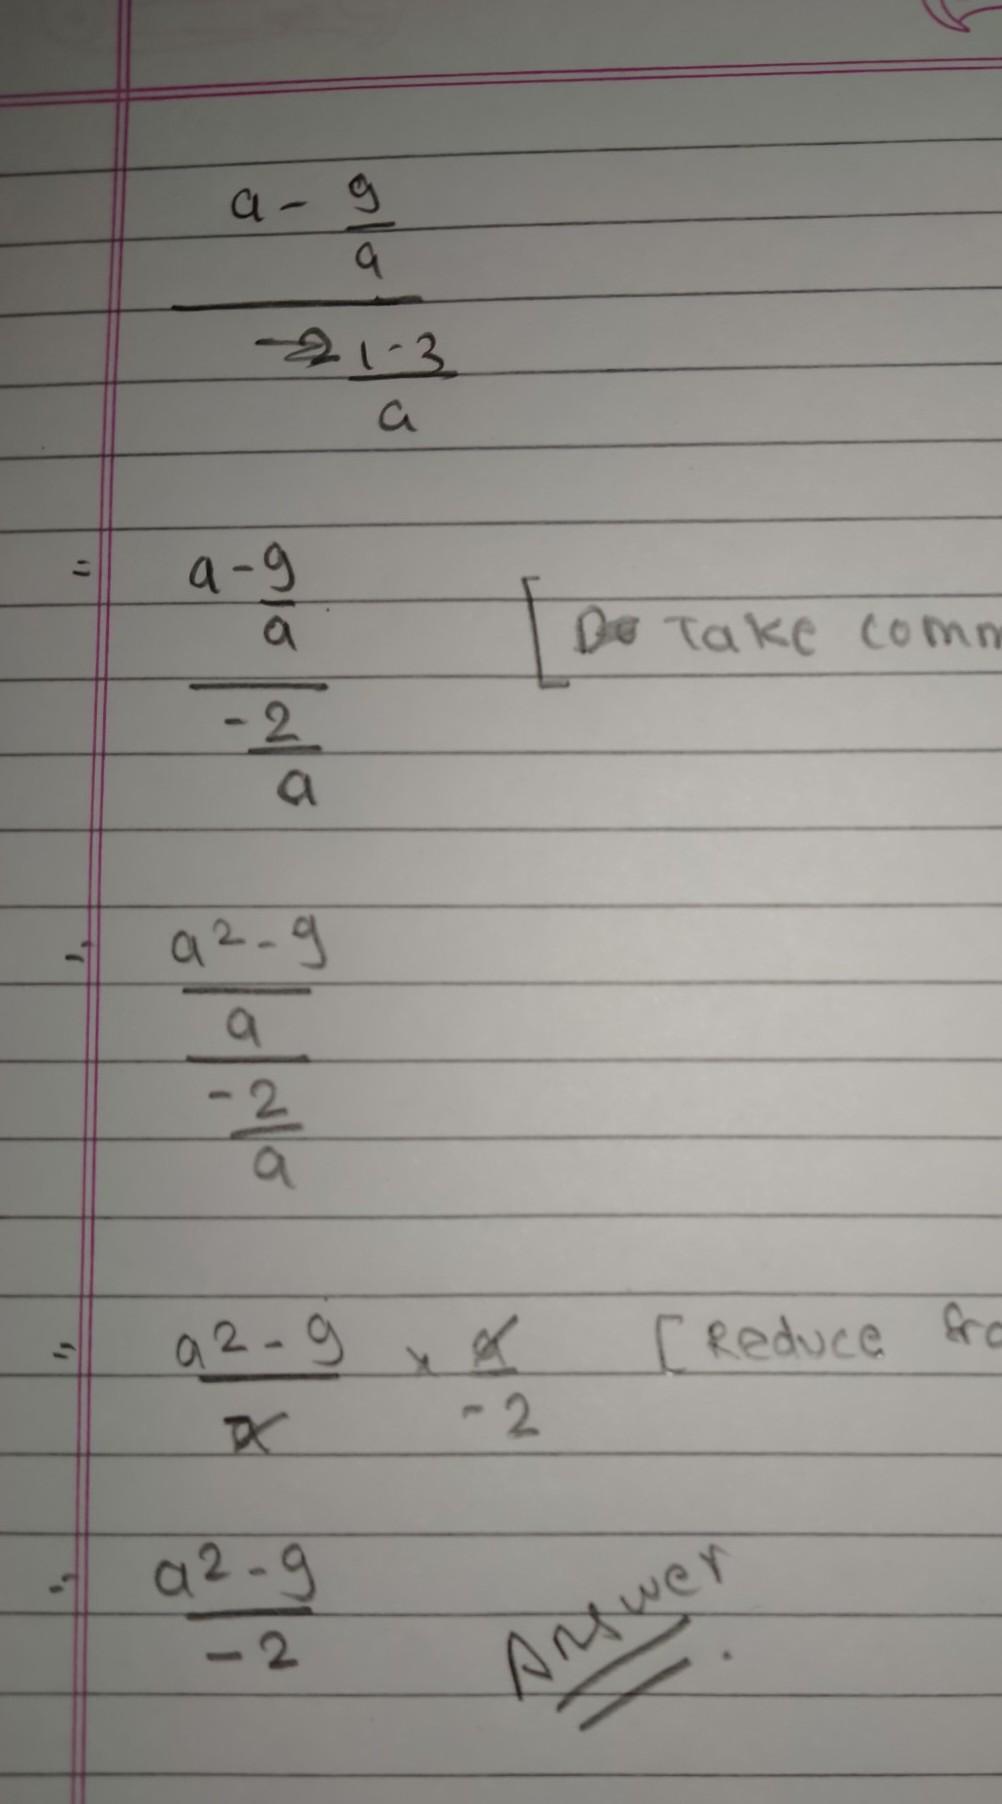 a - 9/a
1-3
a
= a - 9/a
-2/a
[ Take
= a² - 9
a
-2
a
= a² - 9 / a × a / -2 [ Reduce
= a² - 9
-2
Answer.